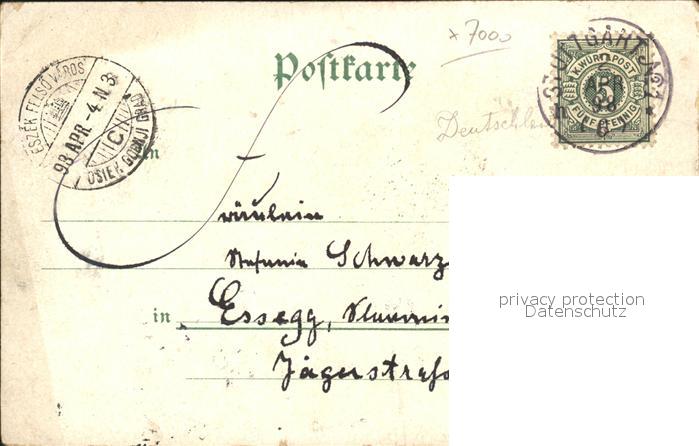 x 7000
Postkarte
STUTTGART No 1
K. WÜRT. POST
APR
5
FÜNF PFENNIG
ESZÉK FELSŐ VÁROS
98 APR. -4. N. 3
C
OSIEK GORNJI GRAD
Deutschland
An
Fräulein
Stefanie Schwarz
in Essegg, Slavonie
Jägerstraße
privacy protection
Datenschutz